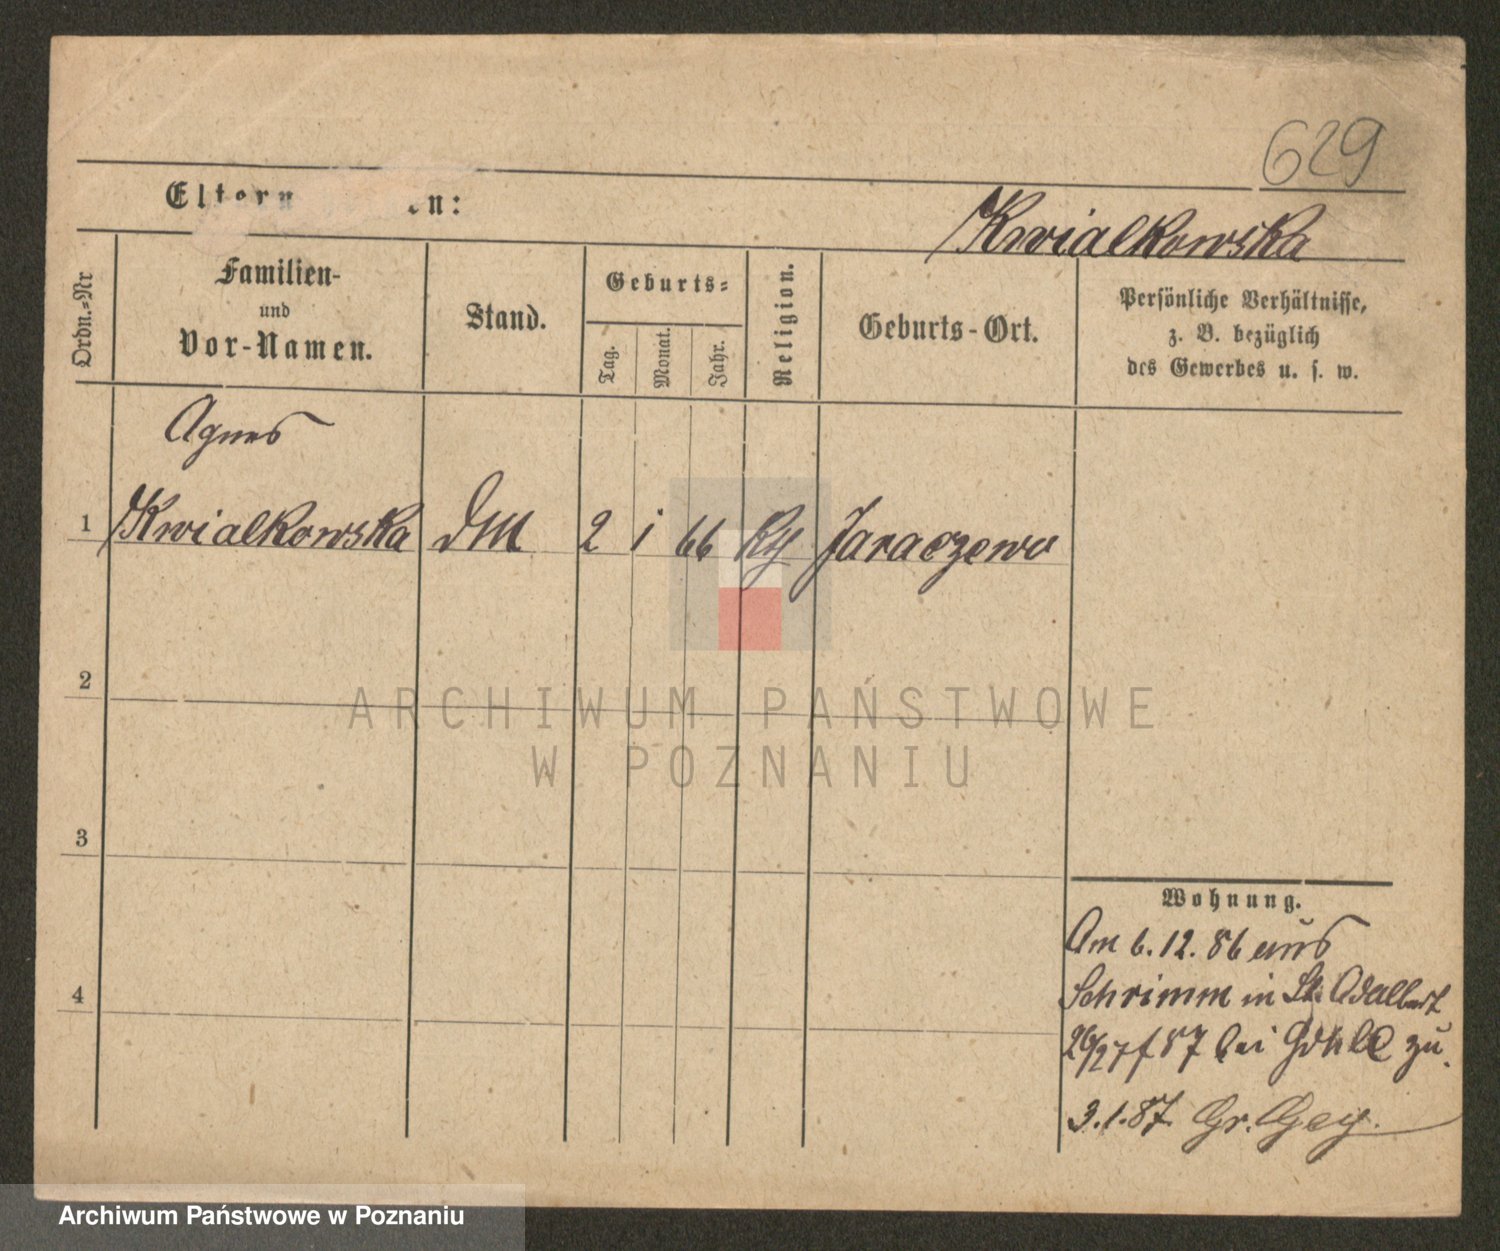 629
Eltern en:
Kwialkowska
Ordn.-Nr
Familien-
und
Vor-Namen.
Stand.
Geburts-
Tag.
Monat.
Jahr.
Religion.
Geburts-Ort.
Persönliche Verhältnisse,
z. B. bezüglich
des Gewerbes u. s. w.
Agnes
1 Kwialkowska DM 2 1 66 Jaraczewo
2
3
4
Wohnung.
Am 6. 12. 86 aus
Schrimm in St. Adalbert
87 bei zu
3.1.87. Gr.
ARCHIWUM PAŃSTWOWE
W POZNANIU
Archiwum Państwowe w Poznaniu